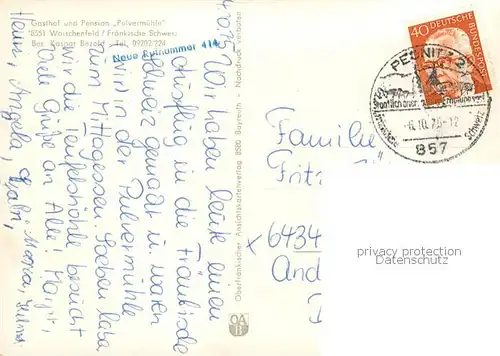 Gasthof und Pension „Pulvermühle"
8551 Waischenfeld / Fränkische Schweiz
Bes. Kaspar Bezold · Tel. 09202/224
Neue Rufnummer 414
4.10.75 Wir haben heute einen
Ausflug in die Fränkische
Schweiz gemacht u. waren
wir in der Pulvermühle
zum Mittagessen. Soeben haben
wir die Teufelshöhle besucht
Viele Grüße an Alle! Margit,
Heinz, Angela,
Oberfränkischer Ansichtskartenverlag 8580 Bayreuth · Nachdruck verboten
OAB
40
DEUTSCHE BUNDESPOST
PEGNITZ 2
Staatlich anerk. Erholungsort
Schweiz
-6.10.75-12
857
Familie
Fritz
6434
privacy protection
Datenschutz